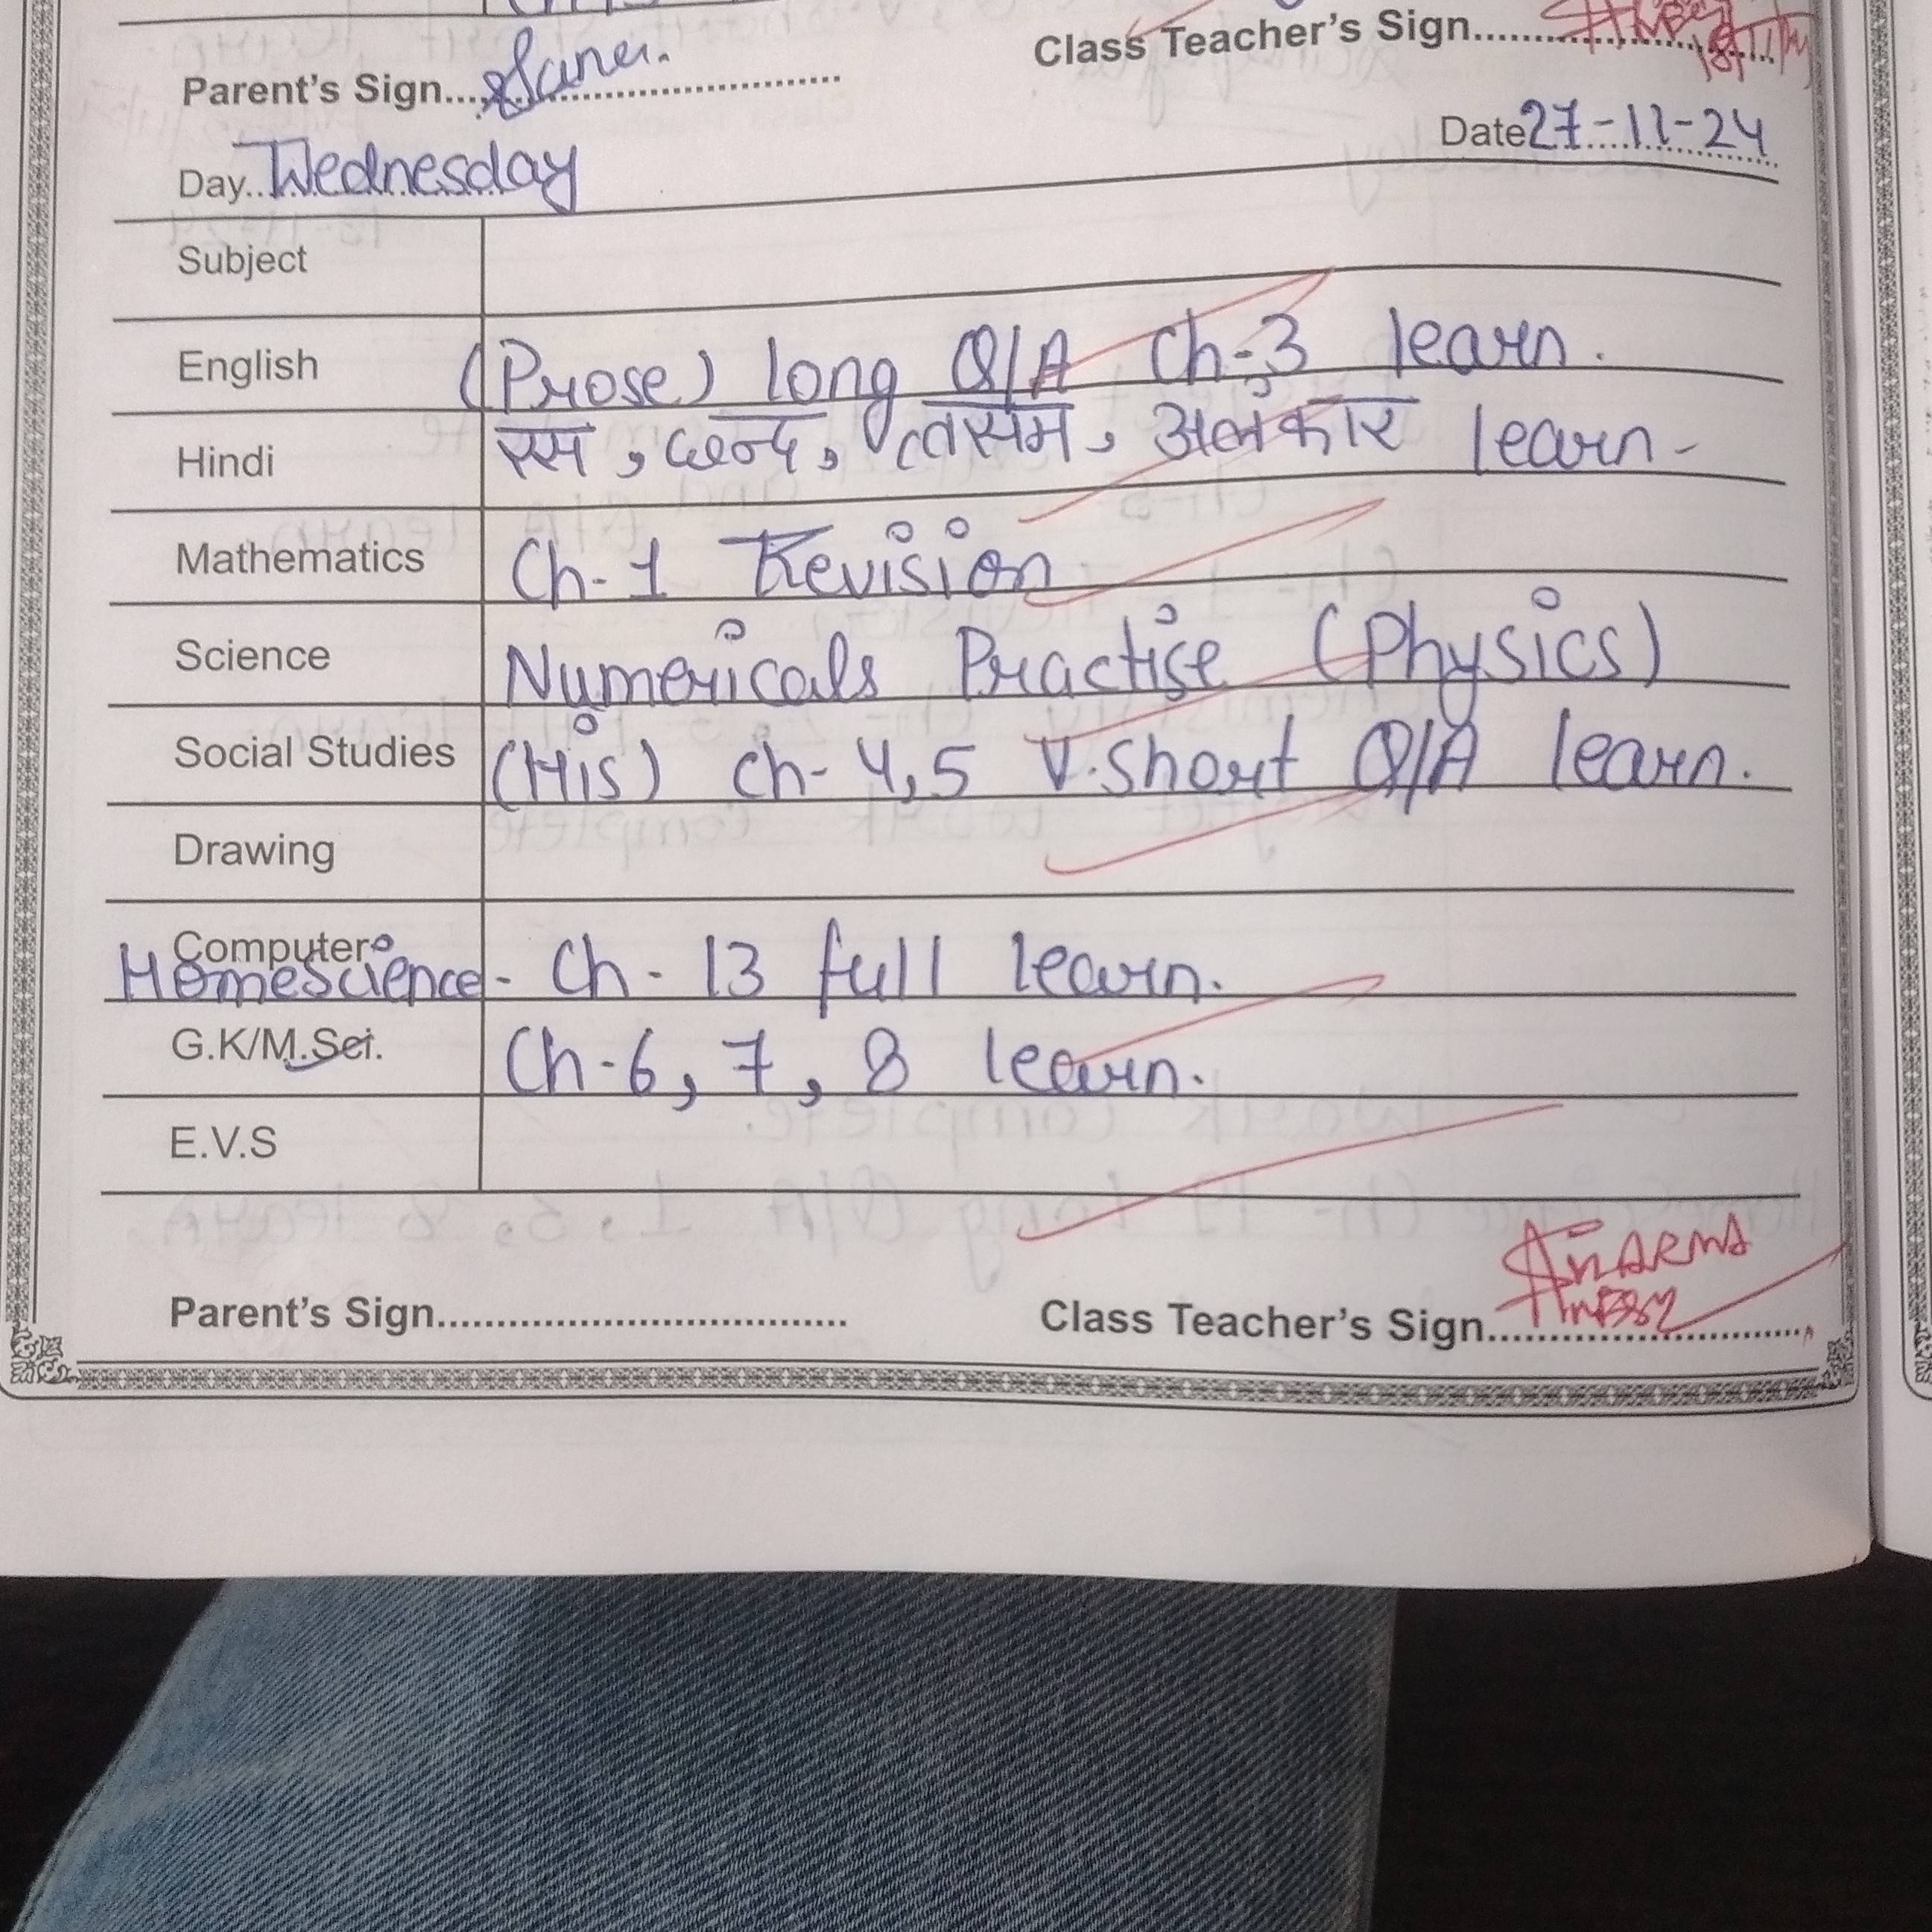 Class Teacher's Sign
Parent's Sign
Date 27-11-24
Day Wednesday
Subject
English (Prose) long Q/A Ch-3 learn.
Hindi रस, छन्द, तत्सम, अलंकार learn-
Mathematics Ch-1 Revision
Science Numericals Practise (Physics)
Social Studies (His) Ch-4,5 V.Short Q/A learn.
Drawing
Computer
Homescience - Ch-13 full learn.
G.K/M.Sci. Ch-6, 7, 8 learn.
E.V.S
Parent's Sign
Class Teacher's Sign